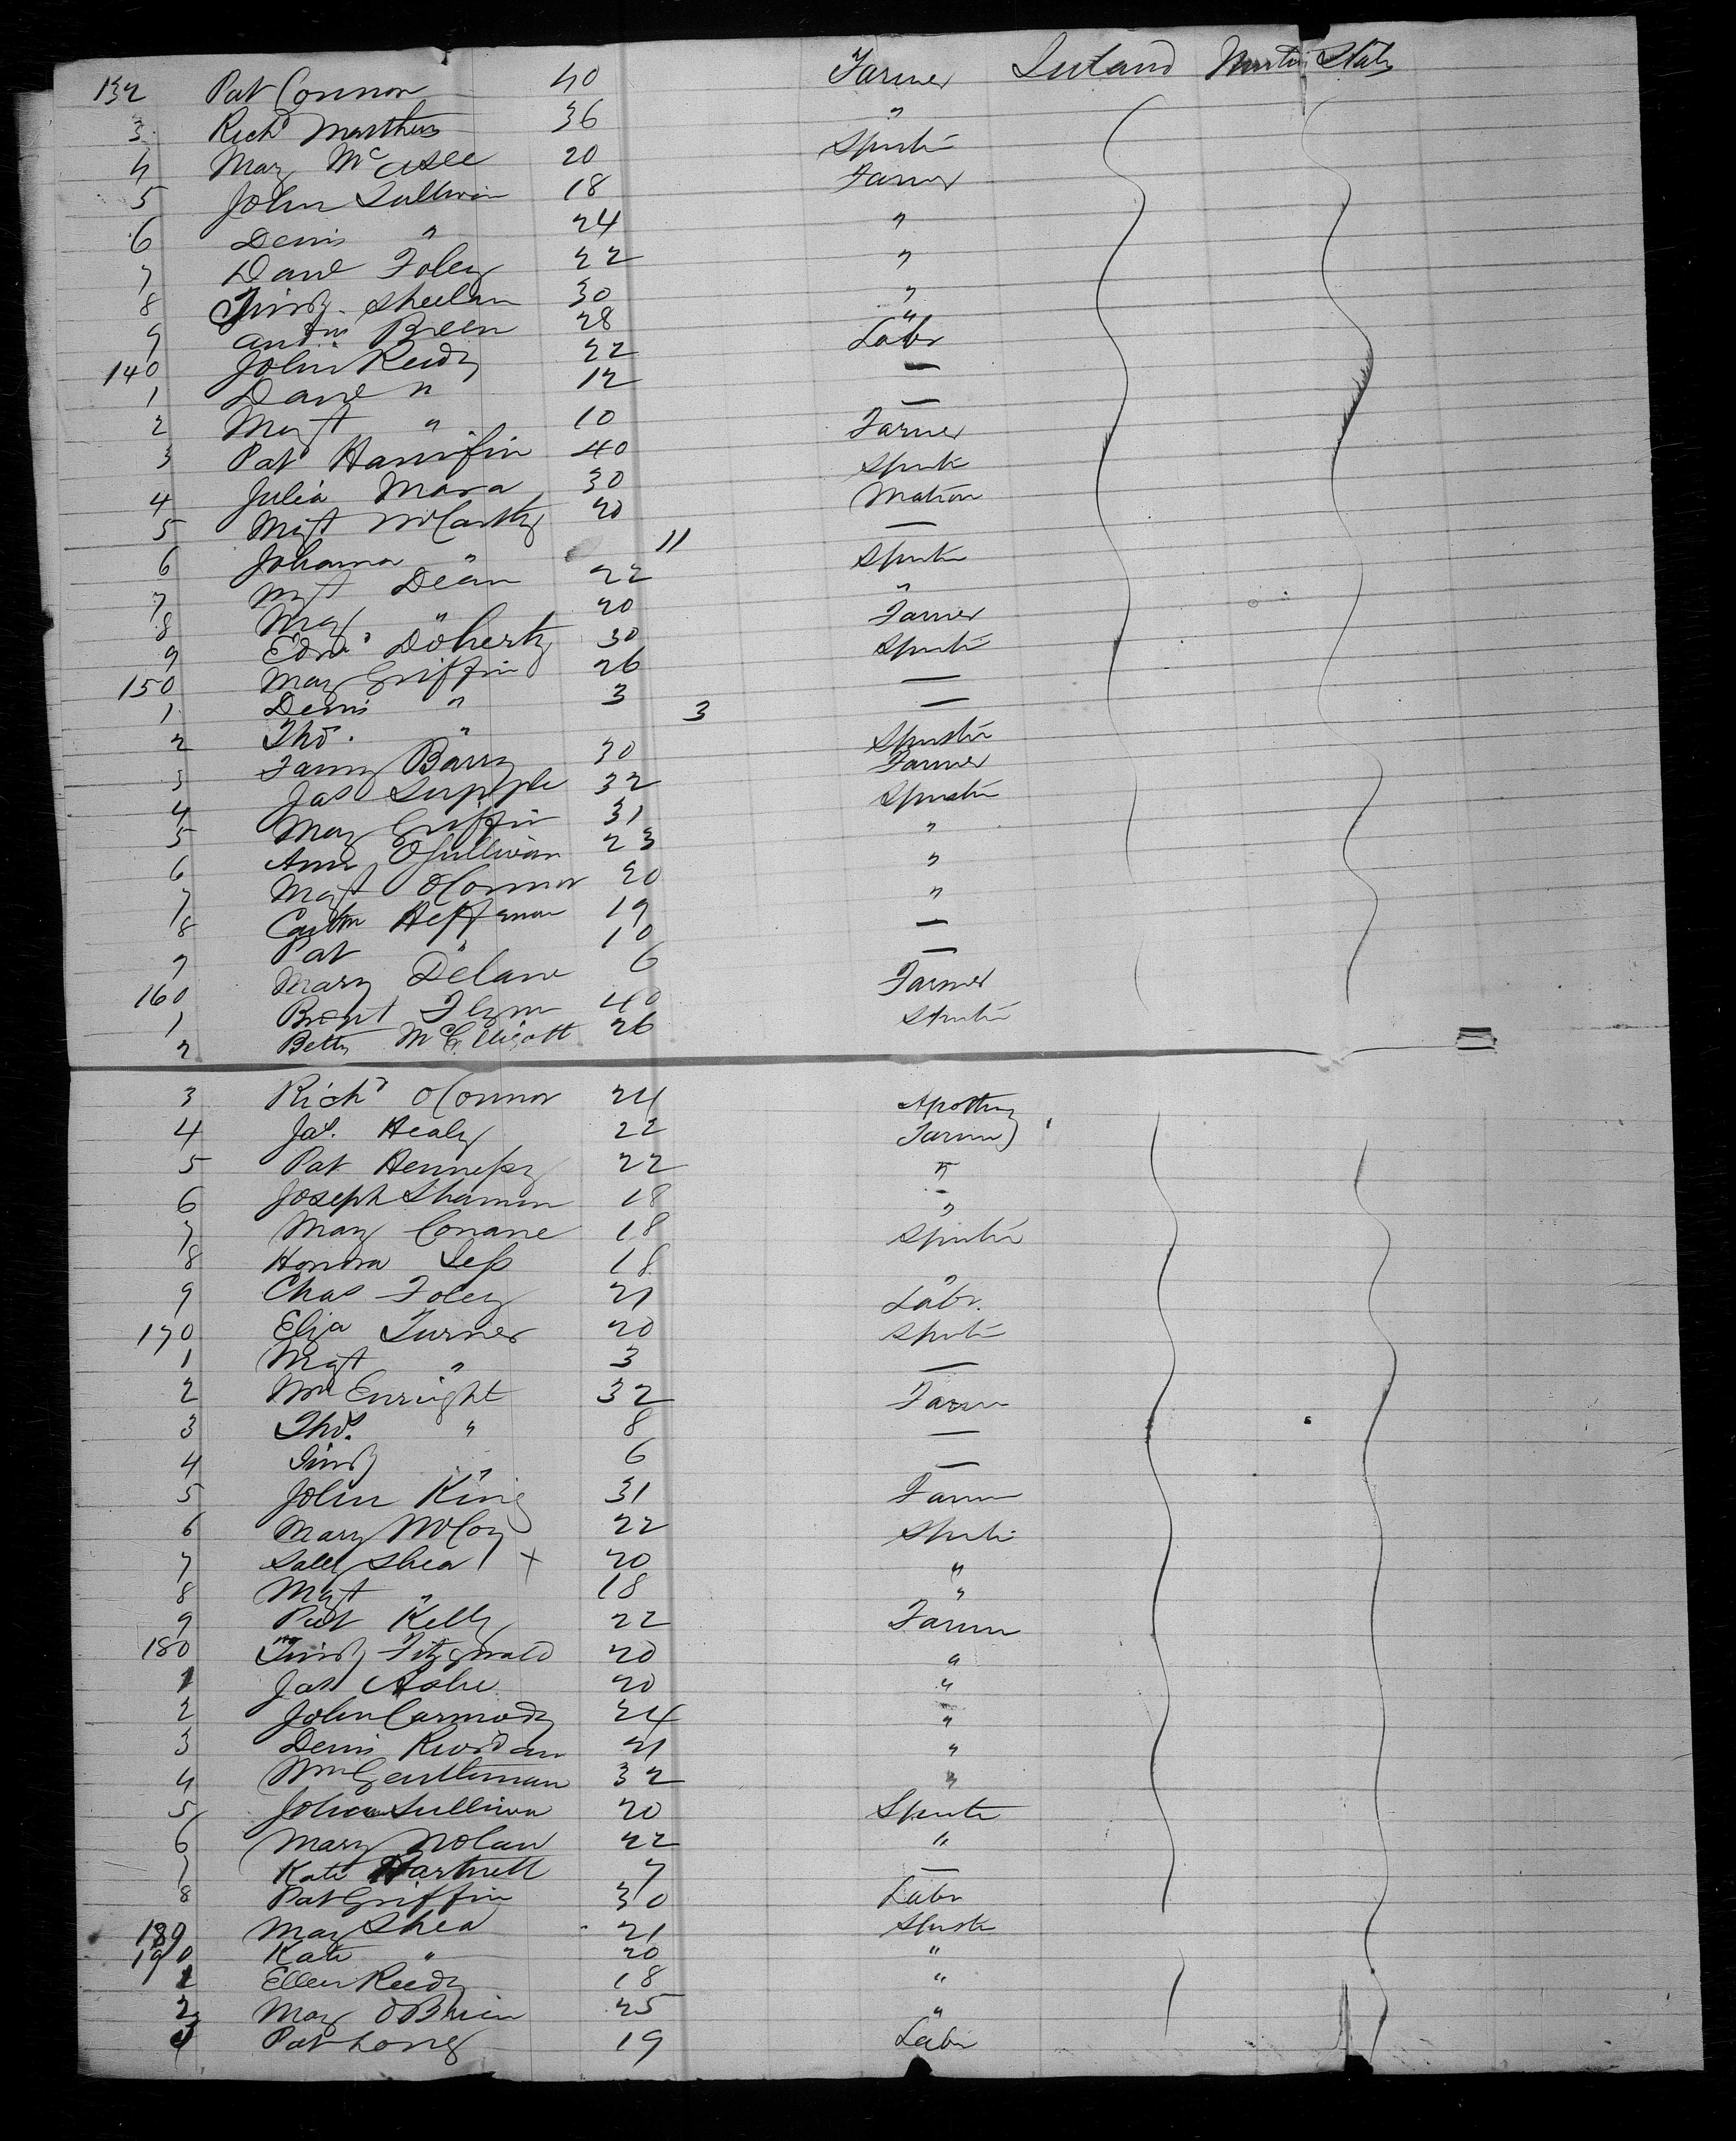 132 Pat Connor 40 Farmer Ireland United States
3 Richd Matthews 36 "
4 Mary McAsee 20 Spinster
5 John Sullivan 18 Farmer
6 Denis " 24 "
7 Danl Foley 22 "
8 Timthy Sheehan 30 "
9 Breen 28 "
140 John Reidy 22 Labr
1 Danl " 12 —
2 Margt " 10 —
3 Pat Hannifin 40 Farmer
4 Julia Mara 30 Spinster
5 Mgt McCarthy 20 Matron
6 Johanna " 11 —
7 Mgt Dean 22 Spinster
8 Mary " 20 "
9 Edmd Doherty 30 Farmer
150 Mary Griffin 26 Spinster
1 Denis " 3 —
2 Thos. " 3 —
3 Fanny Barry 30 Spinster
4 Jas 32 Farmer
5 Mary Griffin 31 Spinster
6 Anne OSullivan 23 "
7 Mgt OConnor 20 "
8 Cathn Heffernan 19 "
9 Pat " 10 —
160 Mary Delane 6 —
1 Flynn 40 Farmer
2 Betty McElligott 26 Spinster
3 Richd OConnor 24 Apothy
4 Jas. Healy 22 Farmer
5 Pat Hennessy 22 "
6 Joseph Shannon 18 "
7 Mary Conane 18 Spinster
8 Honora 18 "
9 Chas Foley 21 Labr.
170 Eliza Turner 20 Spinster
1 Mgt " 3 —
2 Wm Enright 32 Farmer
3 Thos. " 8 —
4 Timthy " 6 —
5 John King 31 Farmer
6 Mary McCoy 22 Spinster
7 Sally Shea + 20 "
8 Mgt " 18 "
9 Pat Kelly 22 Farmer
180 Timthy Fitzgerald 20 "
1 Jas Ashe 20 "
2 John Carmody 24 "
3 Denis Riordan 21 "
4 Wm Gentleman 32 "
5 Sullivan 20 Spinster
6 Mary Nolan 22 "
7 Kate Hartnett 7 —
8 Pat Griffin 30 Labr
189 Mary Shea 21 Spinster
190 Kate " 20 "
1 Ellen Reedy 18 "
2 Mary OBrien 25 "
3 Pat Long 19 Labr